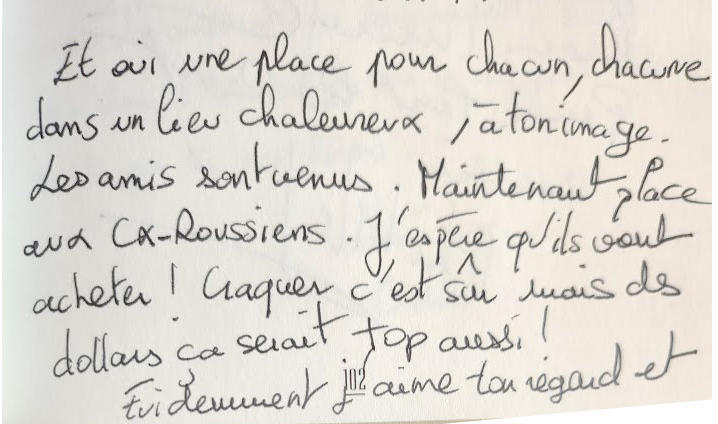 Et oui une place pour chacun, chacune
dans un lieu chaleureux, à ton image.
Les amis sont venus. Maintenant place
aux Cx-Roussiens. J'espère qu'ils vont
acheter ! Craquer c'est sûr mais des
dollars ça serait top aussi !
Evidemment j'aime ton regard et